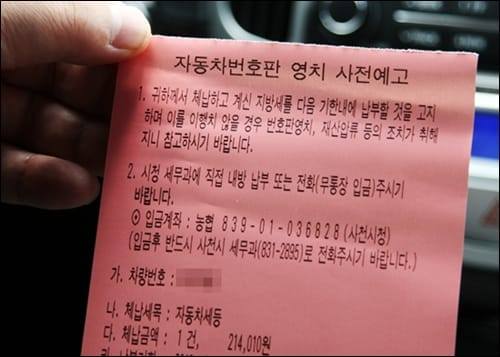 자동차번호판 영치 사전예고
1. 귀하께서 체납하고 계신 지방세를 다음 기한내에 납부할 것을 고지
하며 이를 이행치 않을 경우 번호판영치, 재산압류 등의 조치가 취해
지니 참고하시기 바랍니다.
2. 시청 세무과에 직접 내방 납부 또는 전화(무통장 입금)주시기
바랍니다.
⊙ 입금계좌 : 농협 839-01-036828 (사천시청)
(입금후 반드시 사천시 세무과(831-2895)로 전화주시기 바랍니다.)
가. 차량번호 :
나. 체납세목 : 자동차세등
다. 체납금액 : 1 건, 214,010원